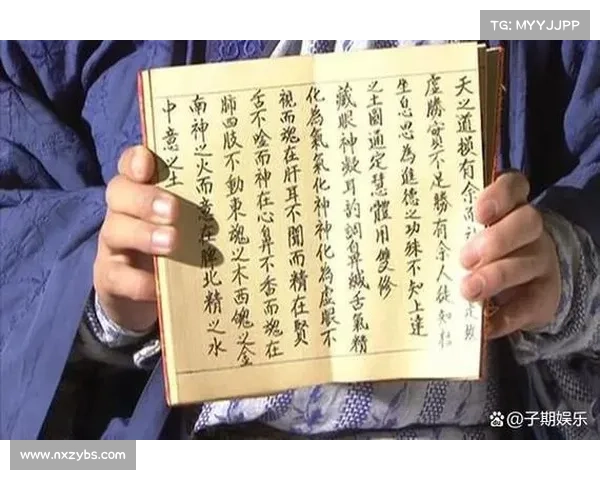 TG: MYYJJPP
天之道損有余而
虛勝實不足勝有余人徒知枯
生息思為進德之功殊不知上達
之土圓通定慧體用雙修
藏眼神凝耳韵調鼻緘舌氣精
化為氣氣化神神化為虛眼不
視而魂在肝耳不聞而精在賢
舌不唫而神在心鼻不香而魂在
肺四肢不動東魂之木西魄之金
南神之火而意在脾北精之水
中意之土
@子期娱乐
www.nxzybs.com